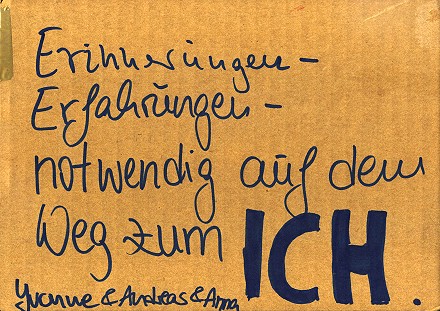 Erinnerungen -
Erfahrungen -
notwendig auf dem
Weg zum ICH.
Yvonne & Andreas & Anna